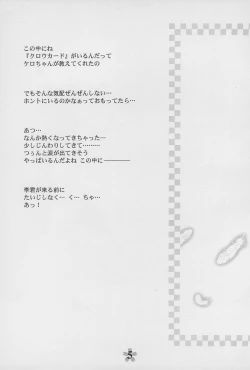 この中にね
『クロウカード』がいるんだって
ケロちゃんが教えてくれたの
でもそんな気配ぜんぜんしない…
ホントにいるのかなぁっておもってたら…
あつ…
なんか熱くなってきちゃった…
少しじんわりしてきて……
つぅんと涙が出てきそう
やっぱいるんだよね この中に————
李君が来る前に
たいじしなく… く… ちゃ…
あっ!
5